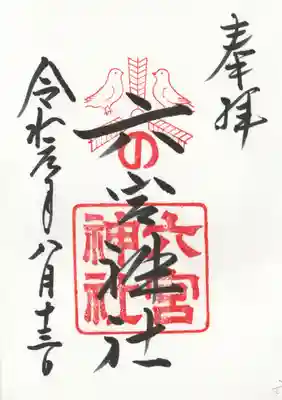 奉拝
六の宮神社
六宮神社
令和元年八月十三日